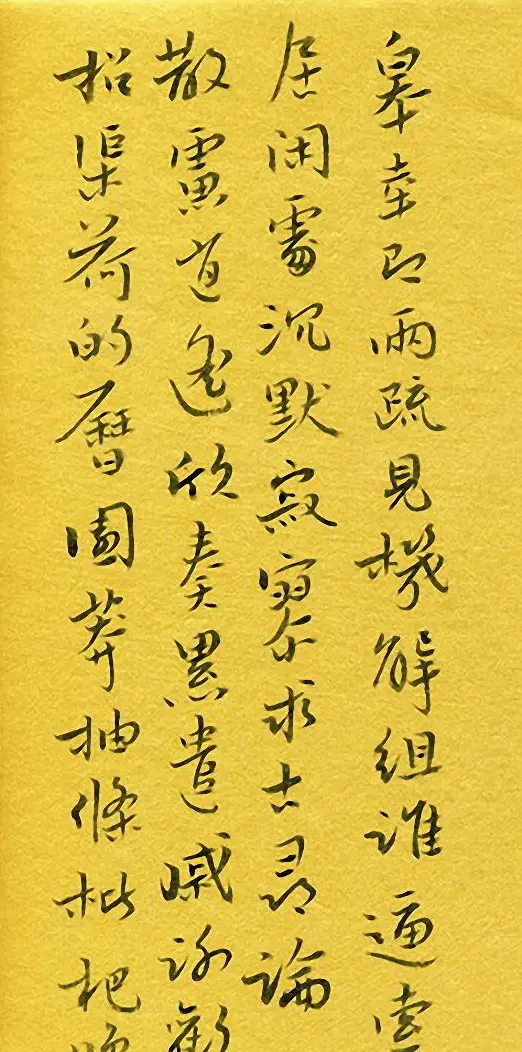 皋幸即兩疏見機解組誰逼索
居閑處沉默寂寥求古尋論
散慮逍遙欣奏累遣慼謝歡
招渠荷的曆園莽抽條枇杷晚